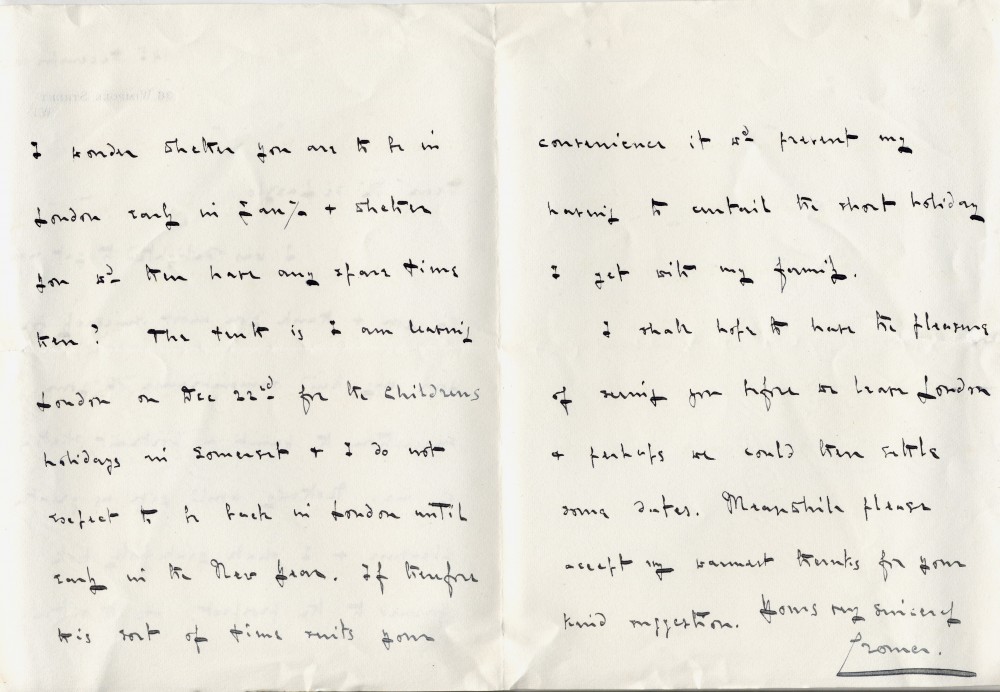 I wonder whether you are to be in
London early in Jan/y + whether
you wd then have any spare time
then? The truth is I am leaving
London on Dec 22nd for the Childrens
holidays in Somerset + I do not
expect to be back in London until
early in the New Year. If therefore
this sort of time suits your
convenience it wd prevent my
having to curtail the short holiday
I get with my family.
I shall hope to have the pleasure
of seeing you before we leave London
+ perhaps we could then settle
some dates. Meanwhile please
accept my warmest thanks for your
kind suggestion. Yours very sincerely
Cromer.